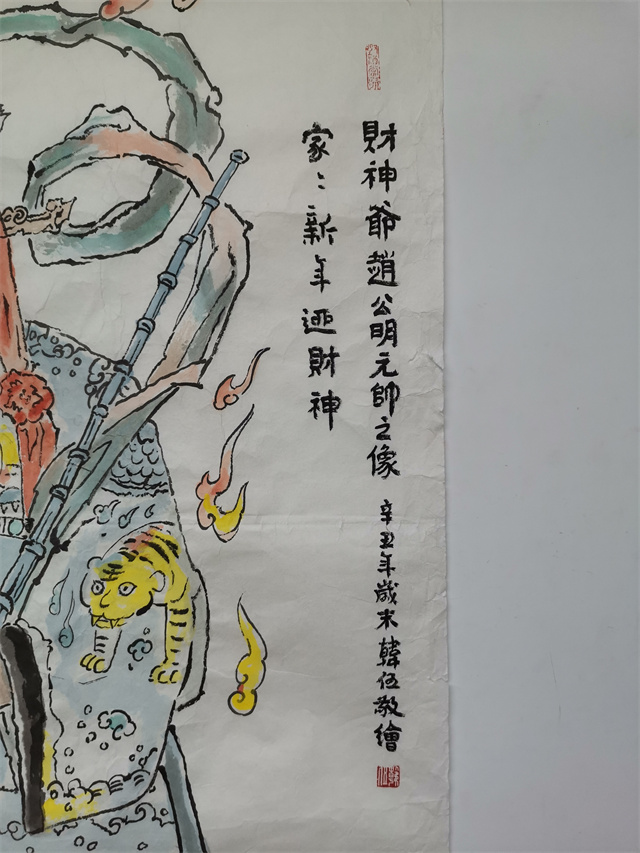 財神爺趙公明元帥之像
辛丑年歲末韓伍敬繪
家〻新年迎財神